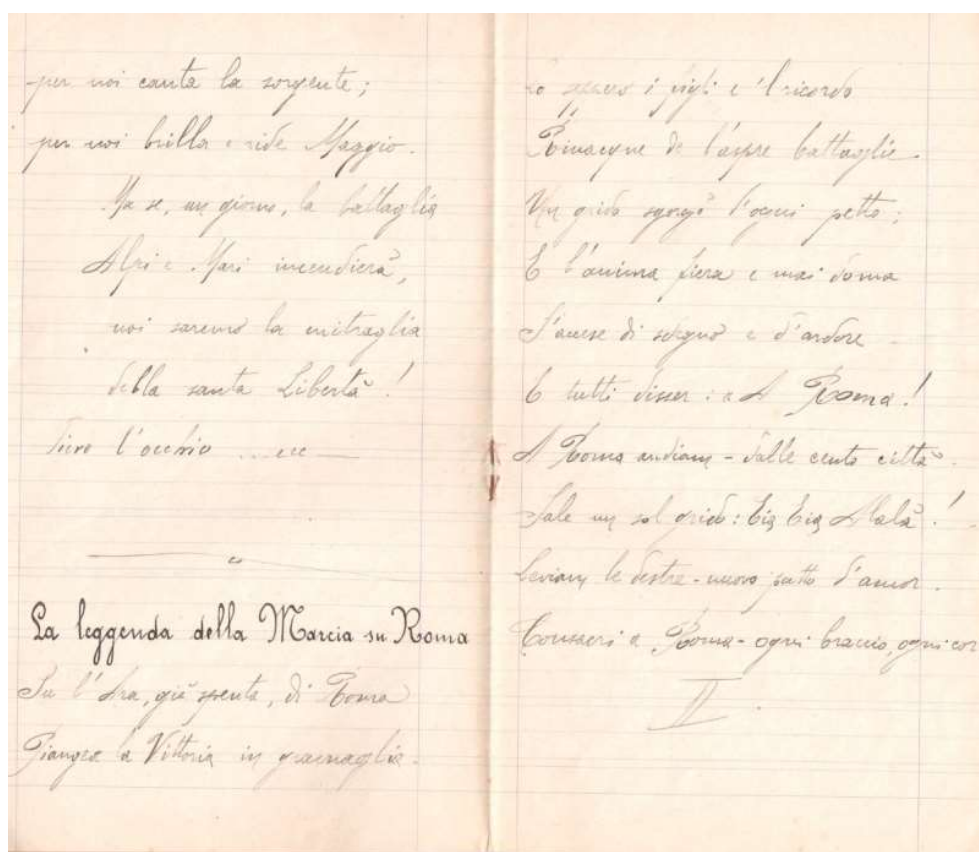 per noi canta la sorgente;
per noi brilla e ride Maggio.
Ma se, un giorno, la battaglia
Alpi e Mari incendierà,
noi saremo la mitraglia
della santa Libertà!
Fiero l'occhio ... ecc
La leggenda della Marcia su Roma
Su l'Ara, già spenta, di Roma
Piangea la Vittoria in gramaglia.
i figli e 'l ricordo
Rinacque de l'aspre battaglie.
Un grido sgorgò d'ogni petto;
E l'anima fiera e mai doma
S'accese di sdegno e d'ardore
E tutti disser: a A Roma!
A Roma andiam - dalle cento città
Sale un sol grido: Eia Eia Alalà!
Leviam le destre - nuovo patto d'amor.
Consacri a Roma - ogni braccio, ogni cor
II.